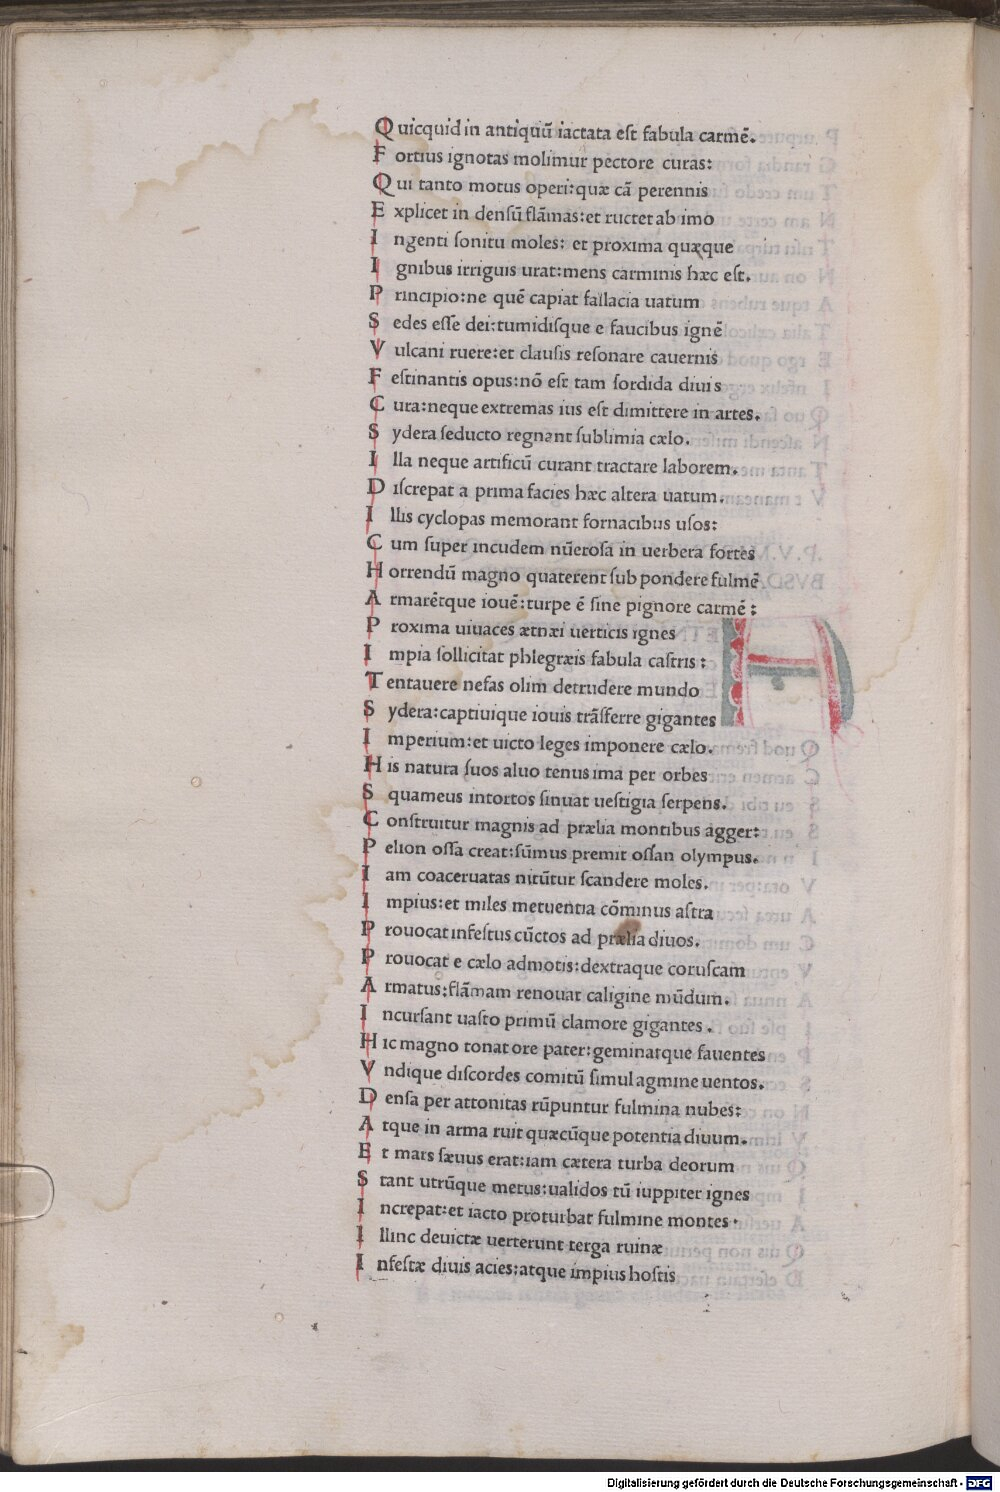 Quicquid in antiquū iactata eſt fabula carmē.
Fortius ignotas molimur pectore curas:
Qui tanto motus operi:quæ cā perennis
Explicet in denſū flāmas:et ructet ab imo
Ingenti ſonitu moles: et proxima quæque
Ignibus irriguis urat:mens carminis hæc eſt.
Principio:ne quē capiat fallacia uatum
Sedes eſſe dei:tumidiſque e faucibus ignē
Vulcani ruere:et clauſis reſonare cauernis
Feſtinantis opus:nō eſt tam ſordida diuis
Cura:neque extremas ius eſt dimittere in artes.
Sydera ſeducto regnant ſublimia cælo.
Illa neque artificū curant tractare laborem.
Diſcrepat a prima facies hæc altera uatum.
Illis cyclopas memorant fornacibus uſos:
Cum ſuper incudem nūeroſa in uerbera fortes
Horrendū magno quaterent ſub pondere fulmē
Armarētque iouē:turpe ē ſine pignore carmē:
Proxima uiuaces ætnæi uerticis ignes
Impia ſollicitat phlegræis fabula caſtris:
Tentauere nefas olim detrudere mundo
Sydera:captiuique iouis trāſferre gigantes
Imperium:et uicto leges imponere cælo.
His natura ſuos aluo tenus ima per orbes
Squameus intortos ſinuat ueſtigia ſerpens.
Conſtruitur magnis ad prælia montibus agger:
Pelion oſſa creat:ſūmus premit oſſan olympus.
Iam coaceruatas nitūtur ſcandere moles.
Impius:et miles metuentia cōminus aſtra
Prouocat infeſtus cūctos ad prælia diuos.
Prouocat e cælo admotis:dextraque coruſcam
Armatus:flāmam renouat caligine mūdum.
Incurſant uaſto primū clamore gigantes.
Hic magno tonat ore pater:geminatque fauentes
Vndique diſcordes comitū ſimul agmine uentos.
Denſa per attonitas rūpuntur fulmina nubes:
Atque in arma ruit quæcūque potentia diuum.
Et mars ſæuus erat:iam cætera turba deorum
Stant utrūque metus:ualidos tū iuppiter ignes
Increpat:et iacto proturbat fulmine montes.
Illinc deuictæ uerterunt terga ruinæ
Infeſtæ diuis acies:atque impius hoſtis
Digitalisierung gefördert durch die Deutsche Forschungsgemeinschaft - DFG